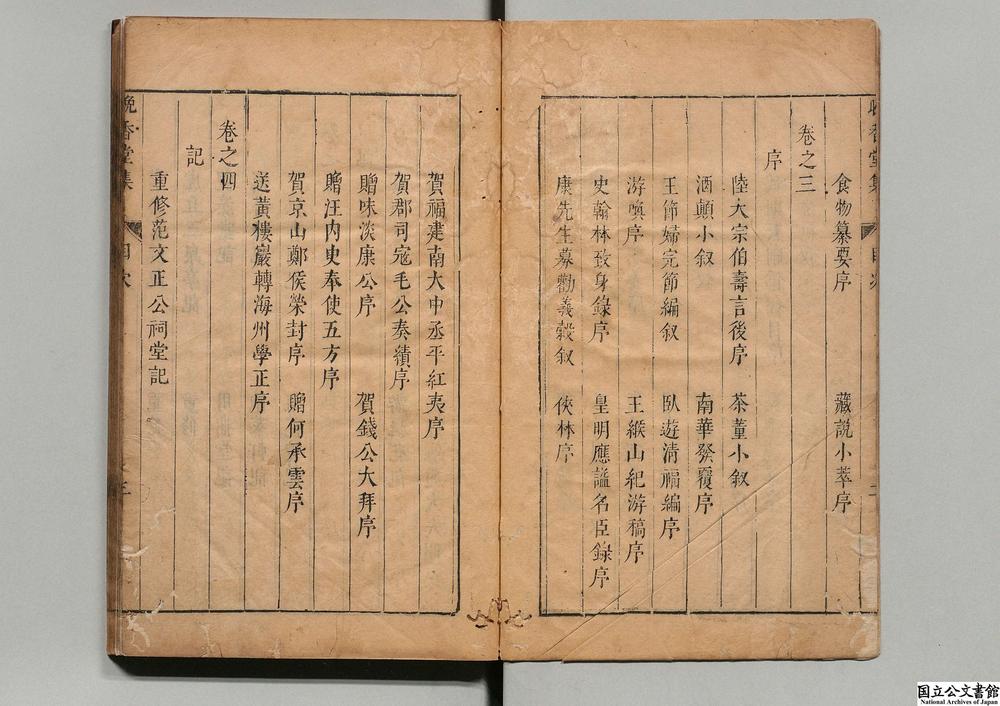 食物纂要序　藏說小萃序
卷之三
序
陸大宗伯壽言後序　茶董小叙
酒顛小叙　南華發覆序
王節婦完節編叙　臥遊清福編序
游喚序　王緱山紀游稿序
史翰林致身錄序　皇明應謚名臣錄序
康先生募勸義穀叙　俠林序
賀福建南大中丞平紅夷序
賀郡司寇毛公奏績序
贈味淡康公序　賀錢公大拜序
贈汪內史奉使五方序
賀京山鄭侯榮封序　贈何承雲序
送黃樓巖轉海州學正序
卷之四
記
重修范文正公祠堂記
晚香堂集　目次　三
国立公文書館
National Archives of Japan